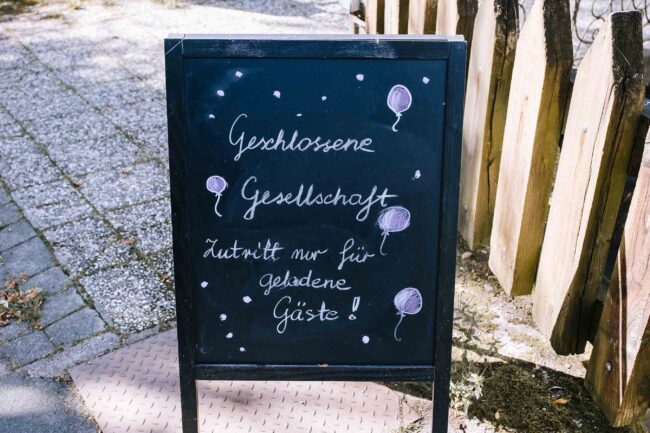 Geschlossene
Gesellschaft
Zutritt nur für
geladene
Gäste !